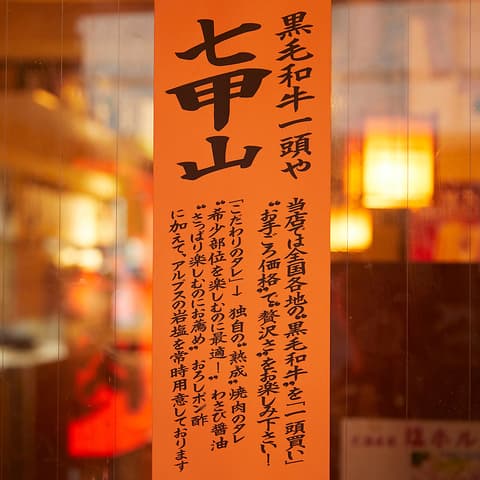 黒毛和牛一頭や
七甲山
当店では全国各地の“黒毛和牛”を「一頭買い」
“お手ごろ価格”で“贅沢さ”をお楽しみ下さい！
「こだわりのタレ」→ 独自の“熟成”焼肉のタレ
“希少部位を楽しむのに最適！” わさび醤油
“さっぱり楽しむのにお薦め” おろしポン酢
に加えて、アルプスの岩塩を常時用意しております
塩ホル